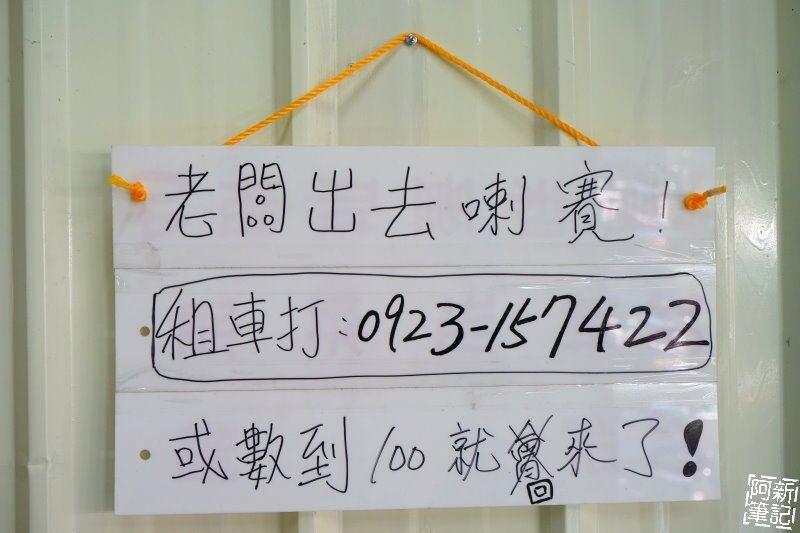 老闆出去喇賽!
租車打:0923-157422
或數到100就回來了!
阿新
筆記